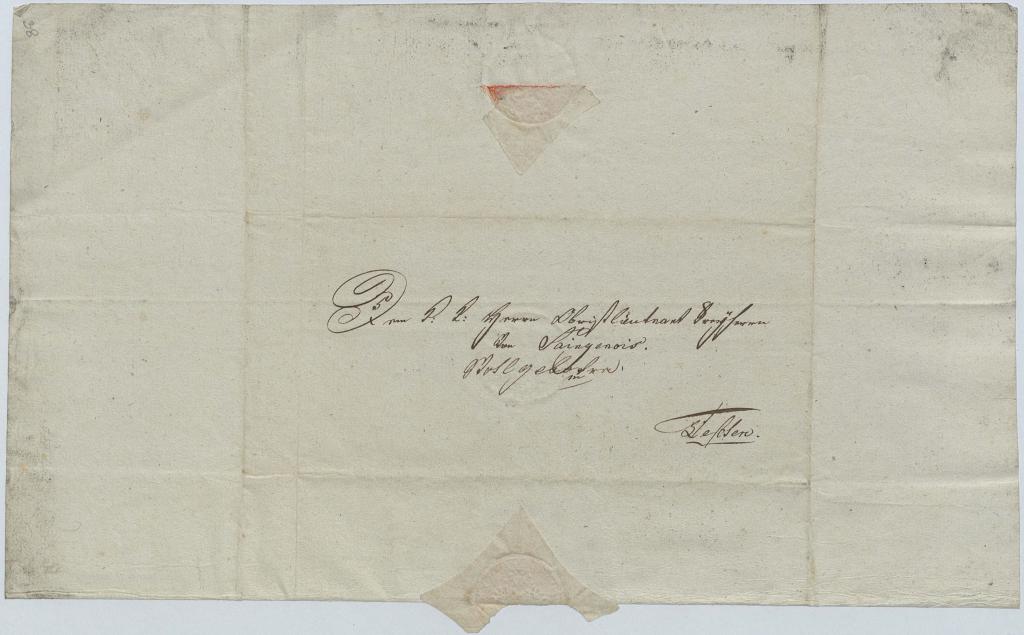 38
Dem K: K: Herrn Obristlieutenant Freyherrn
von Saingenois.
Wohlgebohrn
in
Teschen.